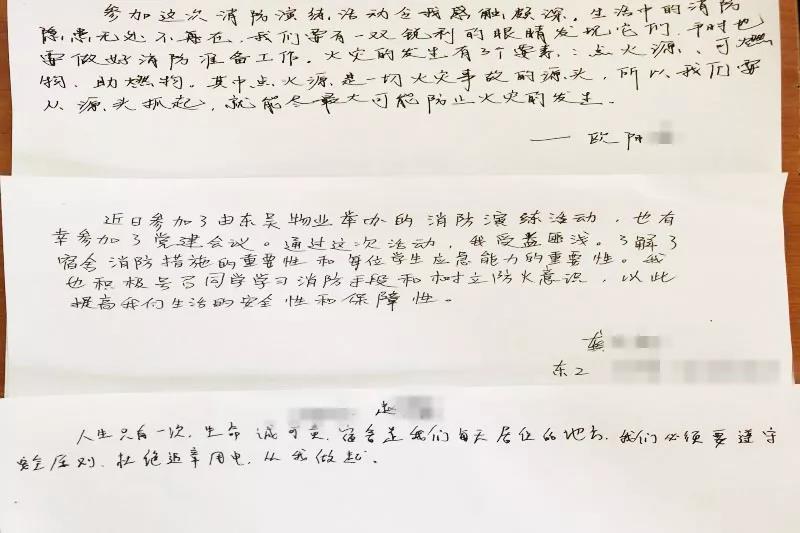 参加这次消防演练活动令我感触颇深。生活中的消防
隐患无处不再在,我们要有一双锐利的眼睛发现它们,平时也
要做好消防准备工作。火灾的发生有3个要素:点火源、可燃
物、助燃物。其中点火源是一切火灾事故的源头,所以我们要
从源头抓起,就能尽最大可能防止火灾的发生。
——欧阳
近日参加了由东吴物业举办的消防演练活动,也有
幸参加了党建会议。通过这次活动,我受益匪浅。了解了
宿舍消防措施的重要性和每位学生应急能力的重要性。我
也积极号召同学学习消防手段和树立防火意识,以此
提高我们生活的安全性和保障性。
龚
东工
赵
人生只有一次,生命诚可贵,宿舍是我们每天居住的地方,我们必须要遵守
安全原则,杜绝违章用电,从我做起。